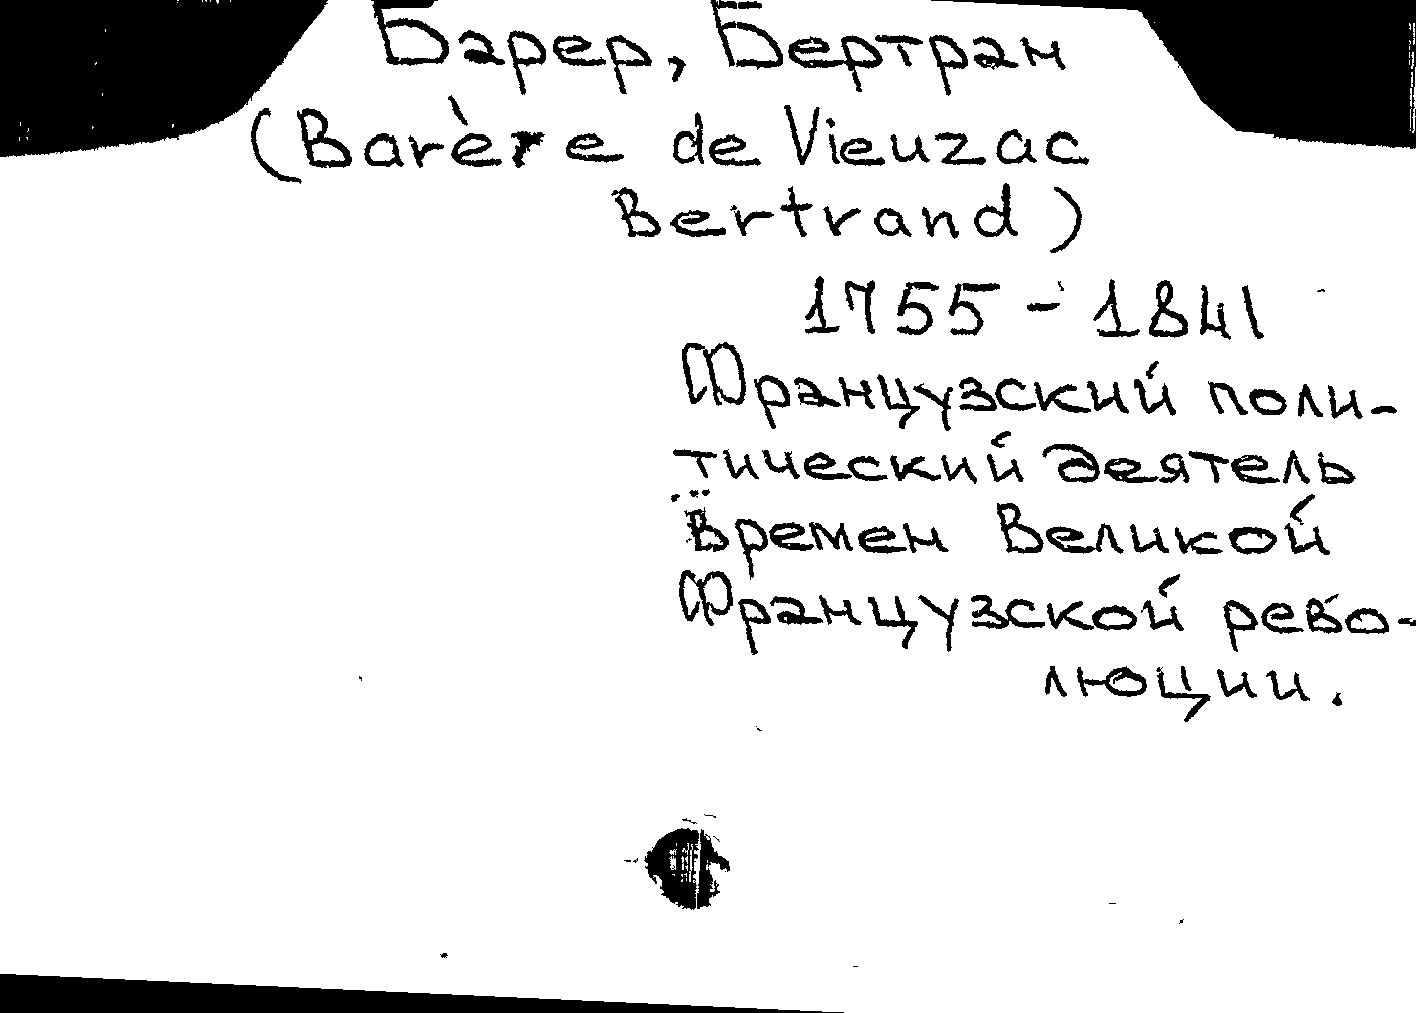 Барер, Бертран
(Barère de Vieuzac
Bertrand)
1755-1841
Французский поли-
тический деятель
времен Великой
Французской рево-
люции.